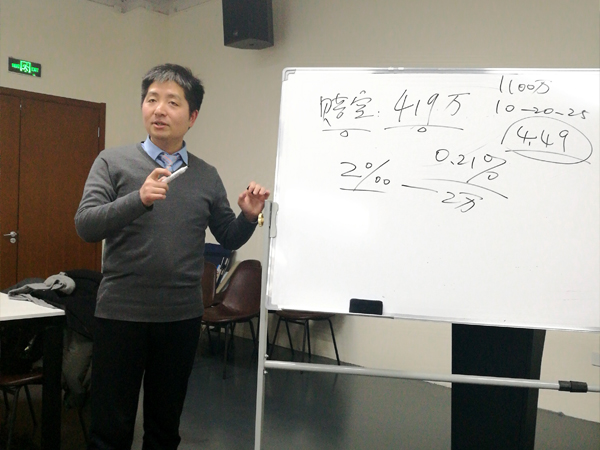 1100万
赔宝: 419万
10-20-25
4.49
2‰ — 0.21%
2万